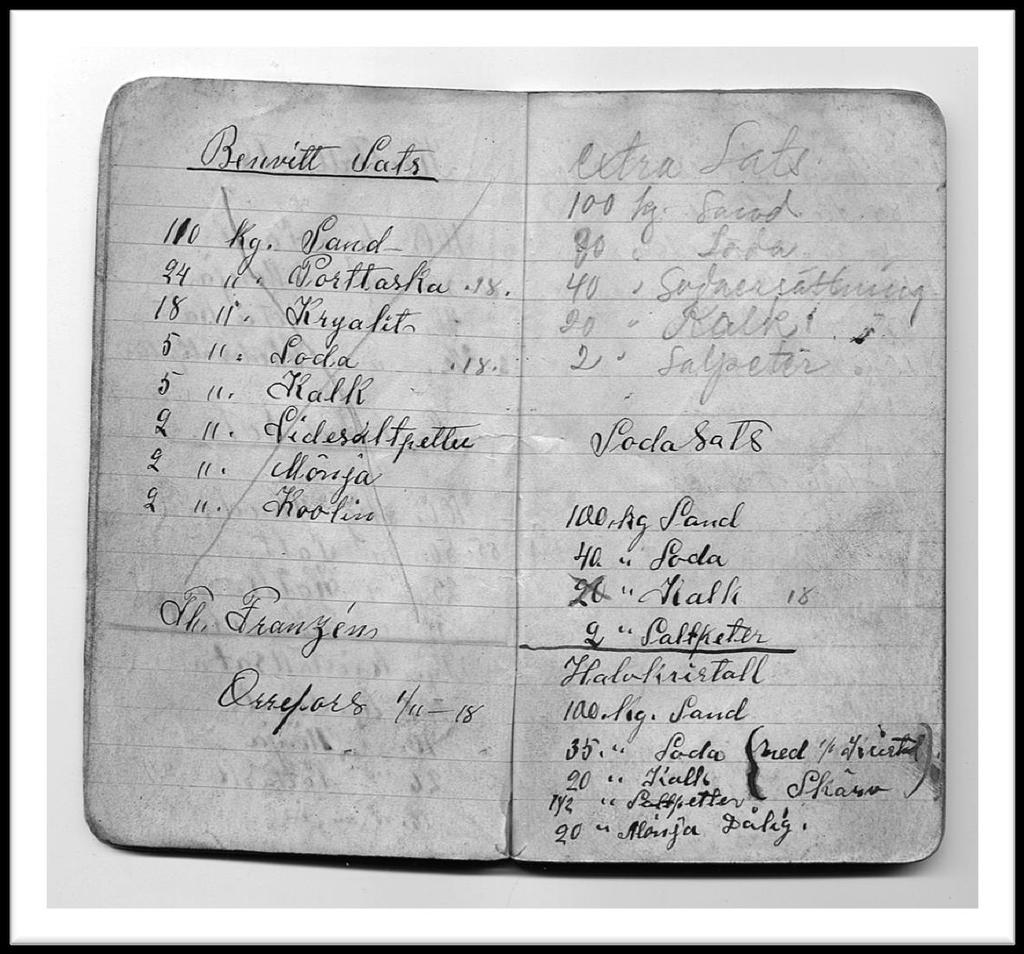 Benvitt Sats
110 kg. Sand
24 " . Porttaska .18.
18 " . Kryalit
5 " . Soda .18.
5 " . Kalk
2 " . Sidesaltpetter
2 " . Mönja
2 " . Koolin
Th. Franzén
Orrefors 1/11 - 18
extra Sats
100 kg. Sand
20 " Soda
40 " Sodaersättning
20 " Kalk
2 " Salpeter
Soda Sats
100. kg Sand
40 " Soda
20 " Kalk 18
2 " Saltpeter
Halvkristall
100. kg. Sand
35. " Soda (med
20 " Kalk Skärv)
1 1/2 " Saltpetter
20 " Mönja Dålig.